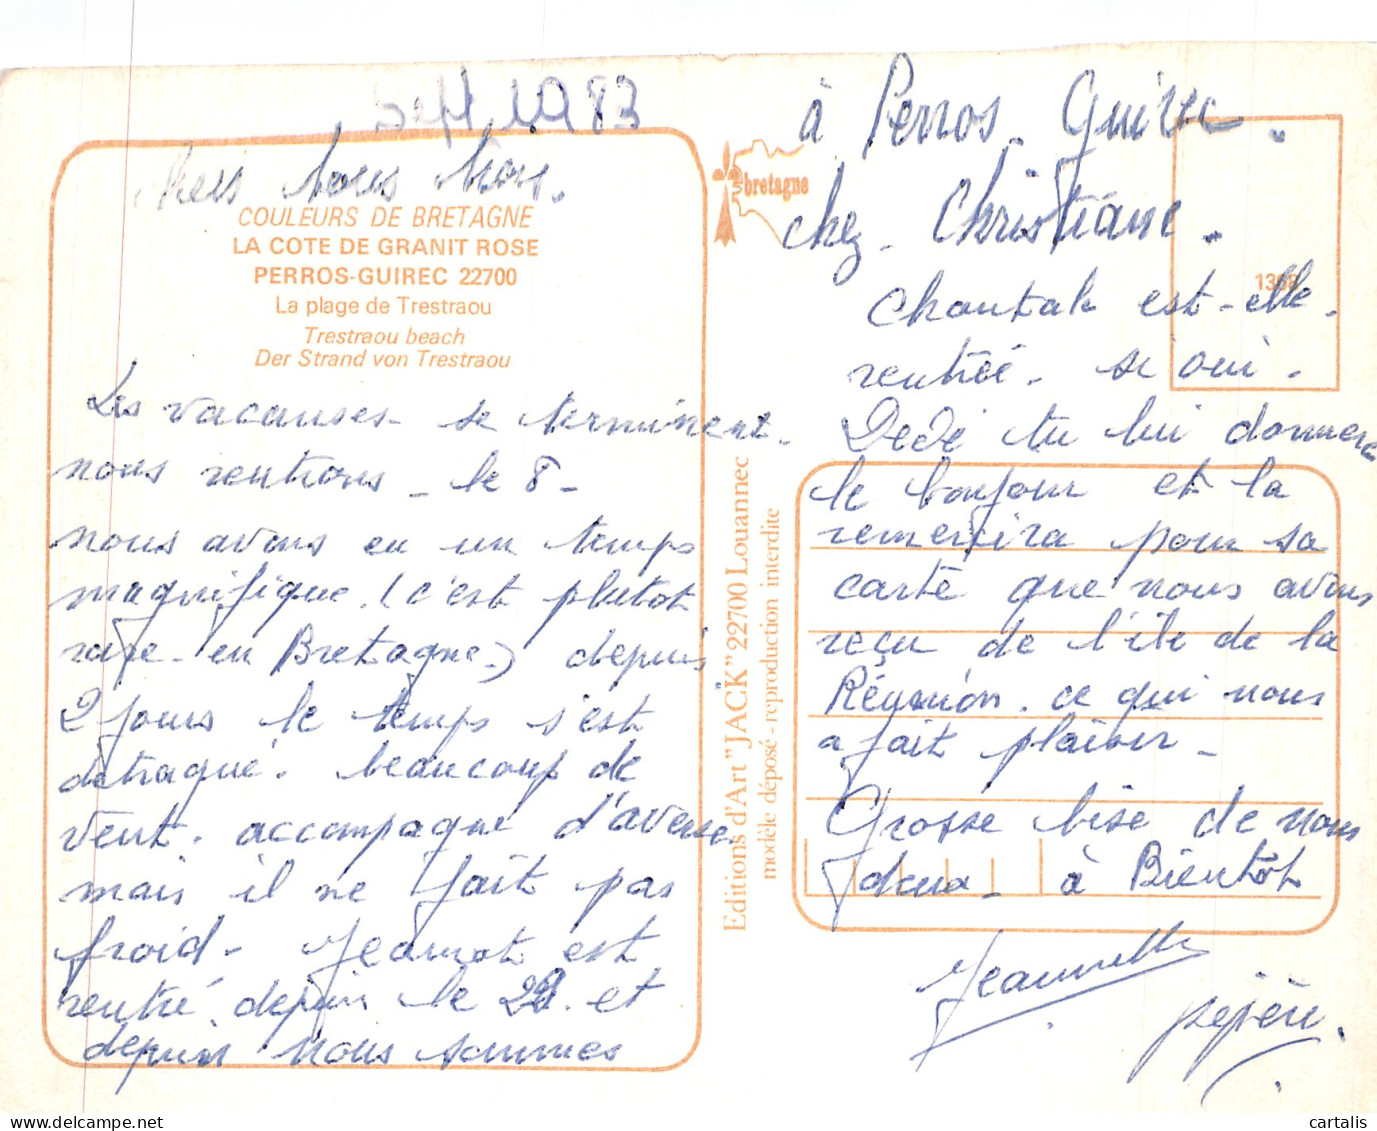 Sept 1983
Chers vous trois.
COULEURS DE BRETAGNE
LA COTE DE GRANIT ROSE
PERROS-GUIREC 22700
La plage de Trestraou
Trestraou beach
Der Strand von Trestraou
Les vacanses - se terminent.
nous rentrons - le 8 -
nous avons eu un temps
magnifique. (c'est plutot
rare - en Bretagne.) depuis
2 jours le temps s'est
détraqué. beaucoup de
vent. accompagné d'averse.
mais il ne fait pas
froid - Jeannot est
rentré depuis le 29. et
depuis nous sommes
bretagne
Editions d'Art "JACK" 22700 Louannec
modèle déposé - reproduction interdite
1368
à Perros - Guirec.
chez - Christiane.
Chantale est-elle.
rentrée - si oui -
Dédé tu lui donnera
le bonjour et la
remercira pour sa
carte que nous avons
reçu de l'ile de la
Réunion. ce qui nous
a fait plaisir -
Grosse bise de nous
deux - à Bientôt
Jeannette
pépère.
cartalis